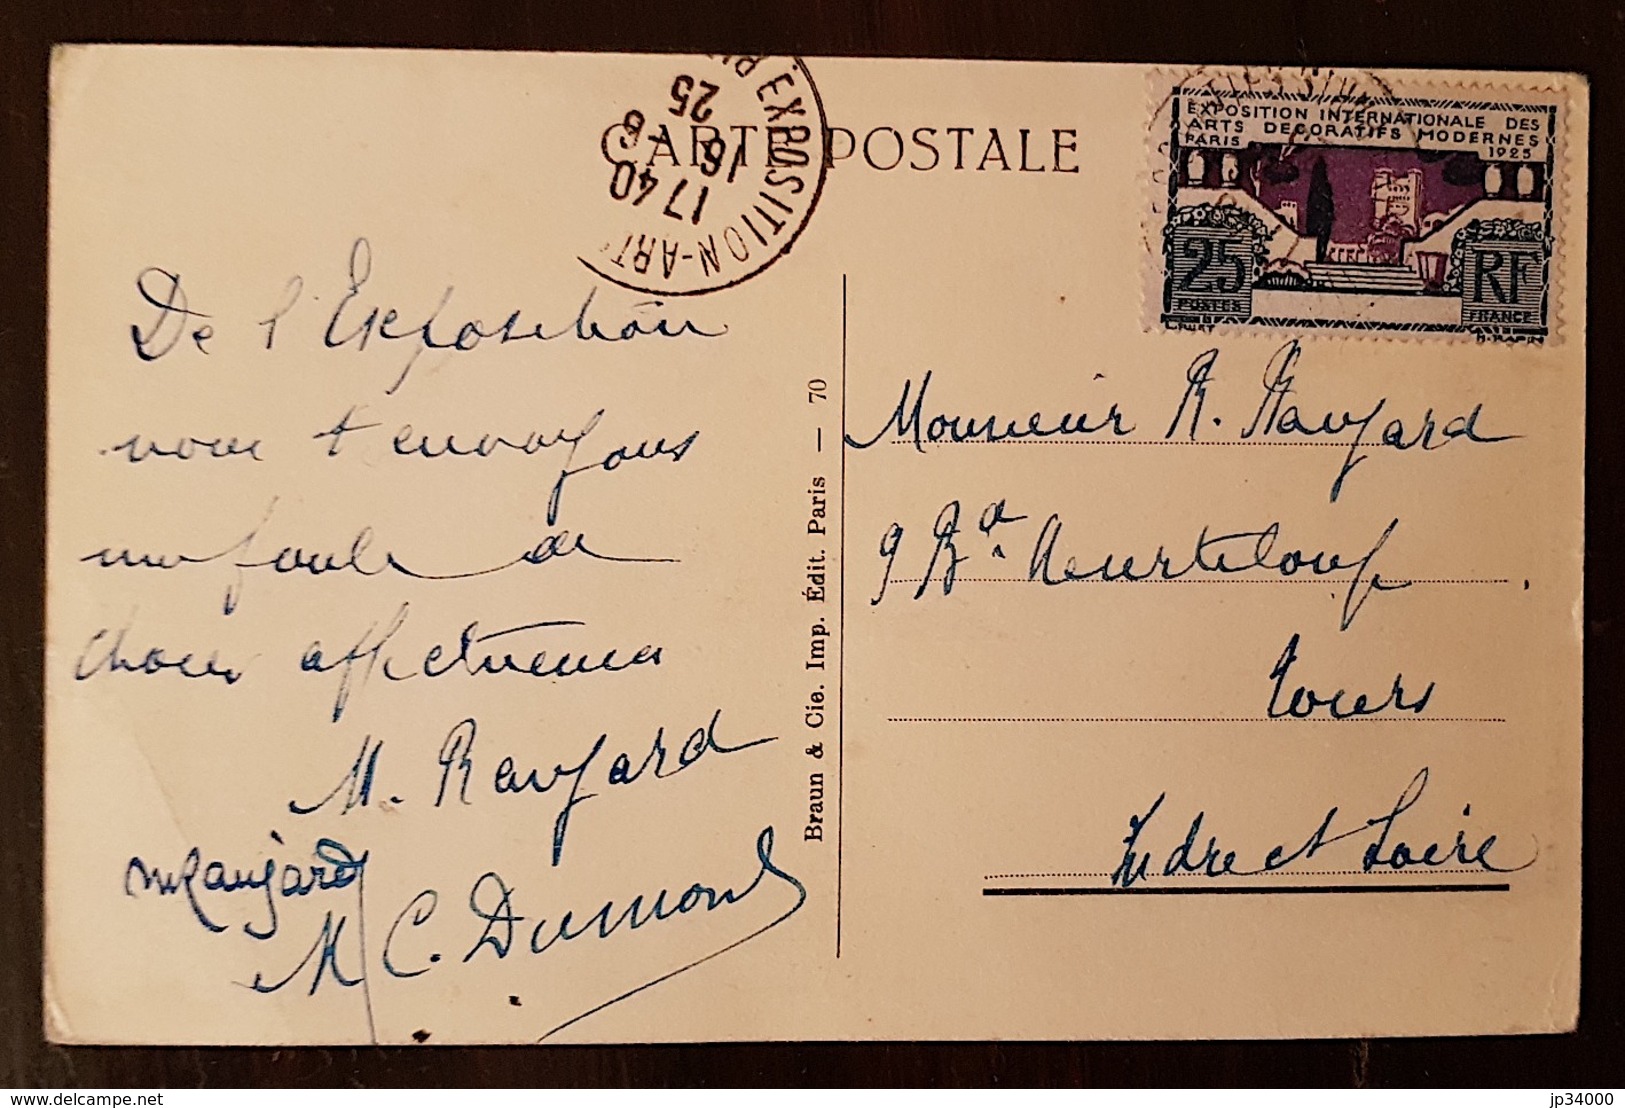 CARTE POSTALE
EXPOSITION-ART
17 40
16 - 6
25
EXPOSITION INTERNATIONALE DES
ARTS DECORATIFS MODERNES
PARIS 1925
25 RF
POSTES FRANCE
H. RAPIN
De l'Exposition
nous t'envoyons
une foule de
choses affectueuses
M. Raujard
M Raujard
M C. Dumont
Braun & Cie. Imp. Édit. Paris — 70
Monsieur R. Raujard
9 Bd. Heurteloup
Tours
Indre et Loire
delcampe.net
jp34000